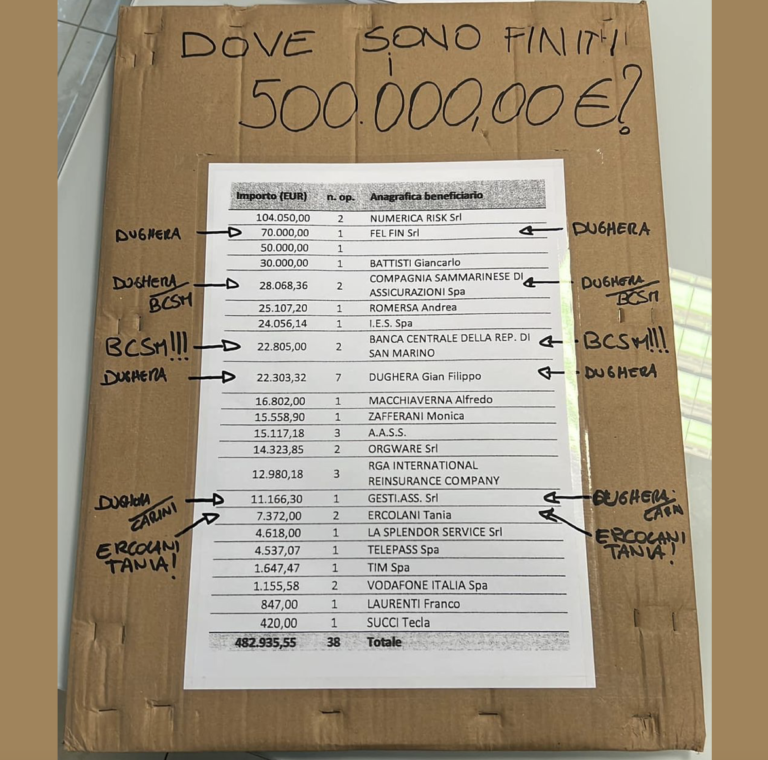 DOVE SONO FINITI
i
500.000,00 €?
Importo (EUR) n. op. Anagrafica beneficiario
104.050,00 2 NUMERICA RISK Srl
DUGHERA 70.000,00 1 FEL FIN Srl DUGHERA
50.000,00 1
30.000,00 1 BATTISTI Giancarlo
DUGHERA/BCSM 28.068,36 2 COMPAGNIA SAMMARINESE DI ASSICURAZIONI Spa DUGHERA/BCSM
25.107,20 1 ROMERSA Andrea
24.056,14 1 I.E.S. Spa
BCSM!!! 22.805,00 2 BANCA CENTRALE DELLA REP. DI SAN MARINO BCSM!!!
DUGHERA 22.303,32 7 DUGHERA Gian Filippo DUGHERA
16.802,00 1 MACCHIAVERNA Alfredo
15.558,90 1 ZAFFERANI Monica
15.117,18 3 A.A.S.S.
14.323,85 2 ORGWARE Srl
12.980,18 3 RGA INTERNATIONAL REINSURANCE COMPANY
/CARINI 11.166,30 1 GESTI.ASS. Srl DUGHERA
ERCOLANI TANIA! 7.372,00 2 ERCOLANI Tania ERCOLANI TANIA!
4.618,00 1 LA SPLENDOR SERVICE Srl
4.537,07 1 TELEPASS Spa
1.647,47 1 TIM Spa
1.155,58 2 VODAFONE ITALIA Spa
847,00 1 LAURENTI Franco
420,00 1 SUCCI Tecla
482.935,55 38 Totale